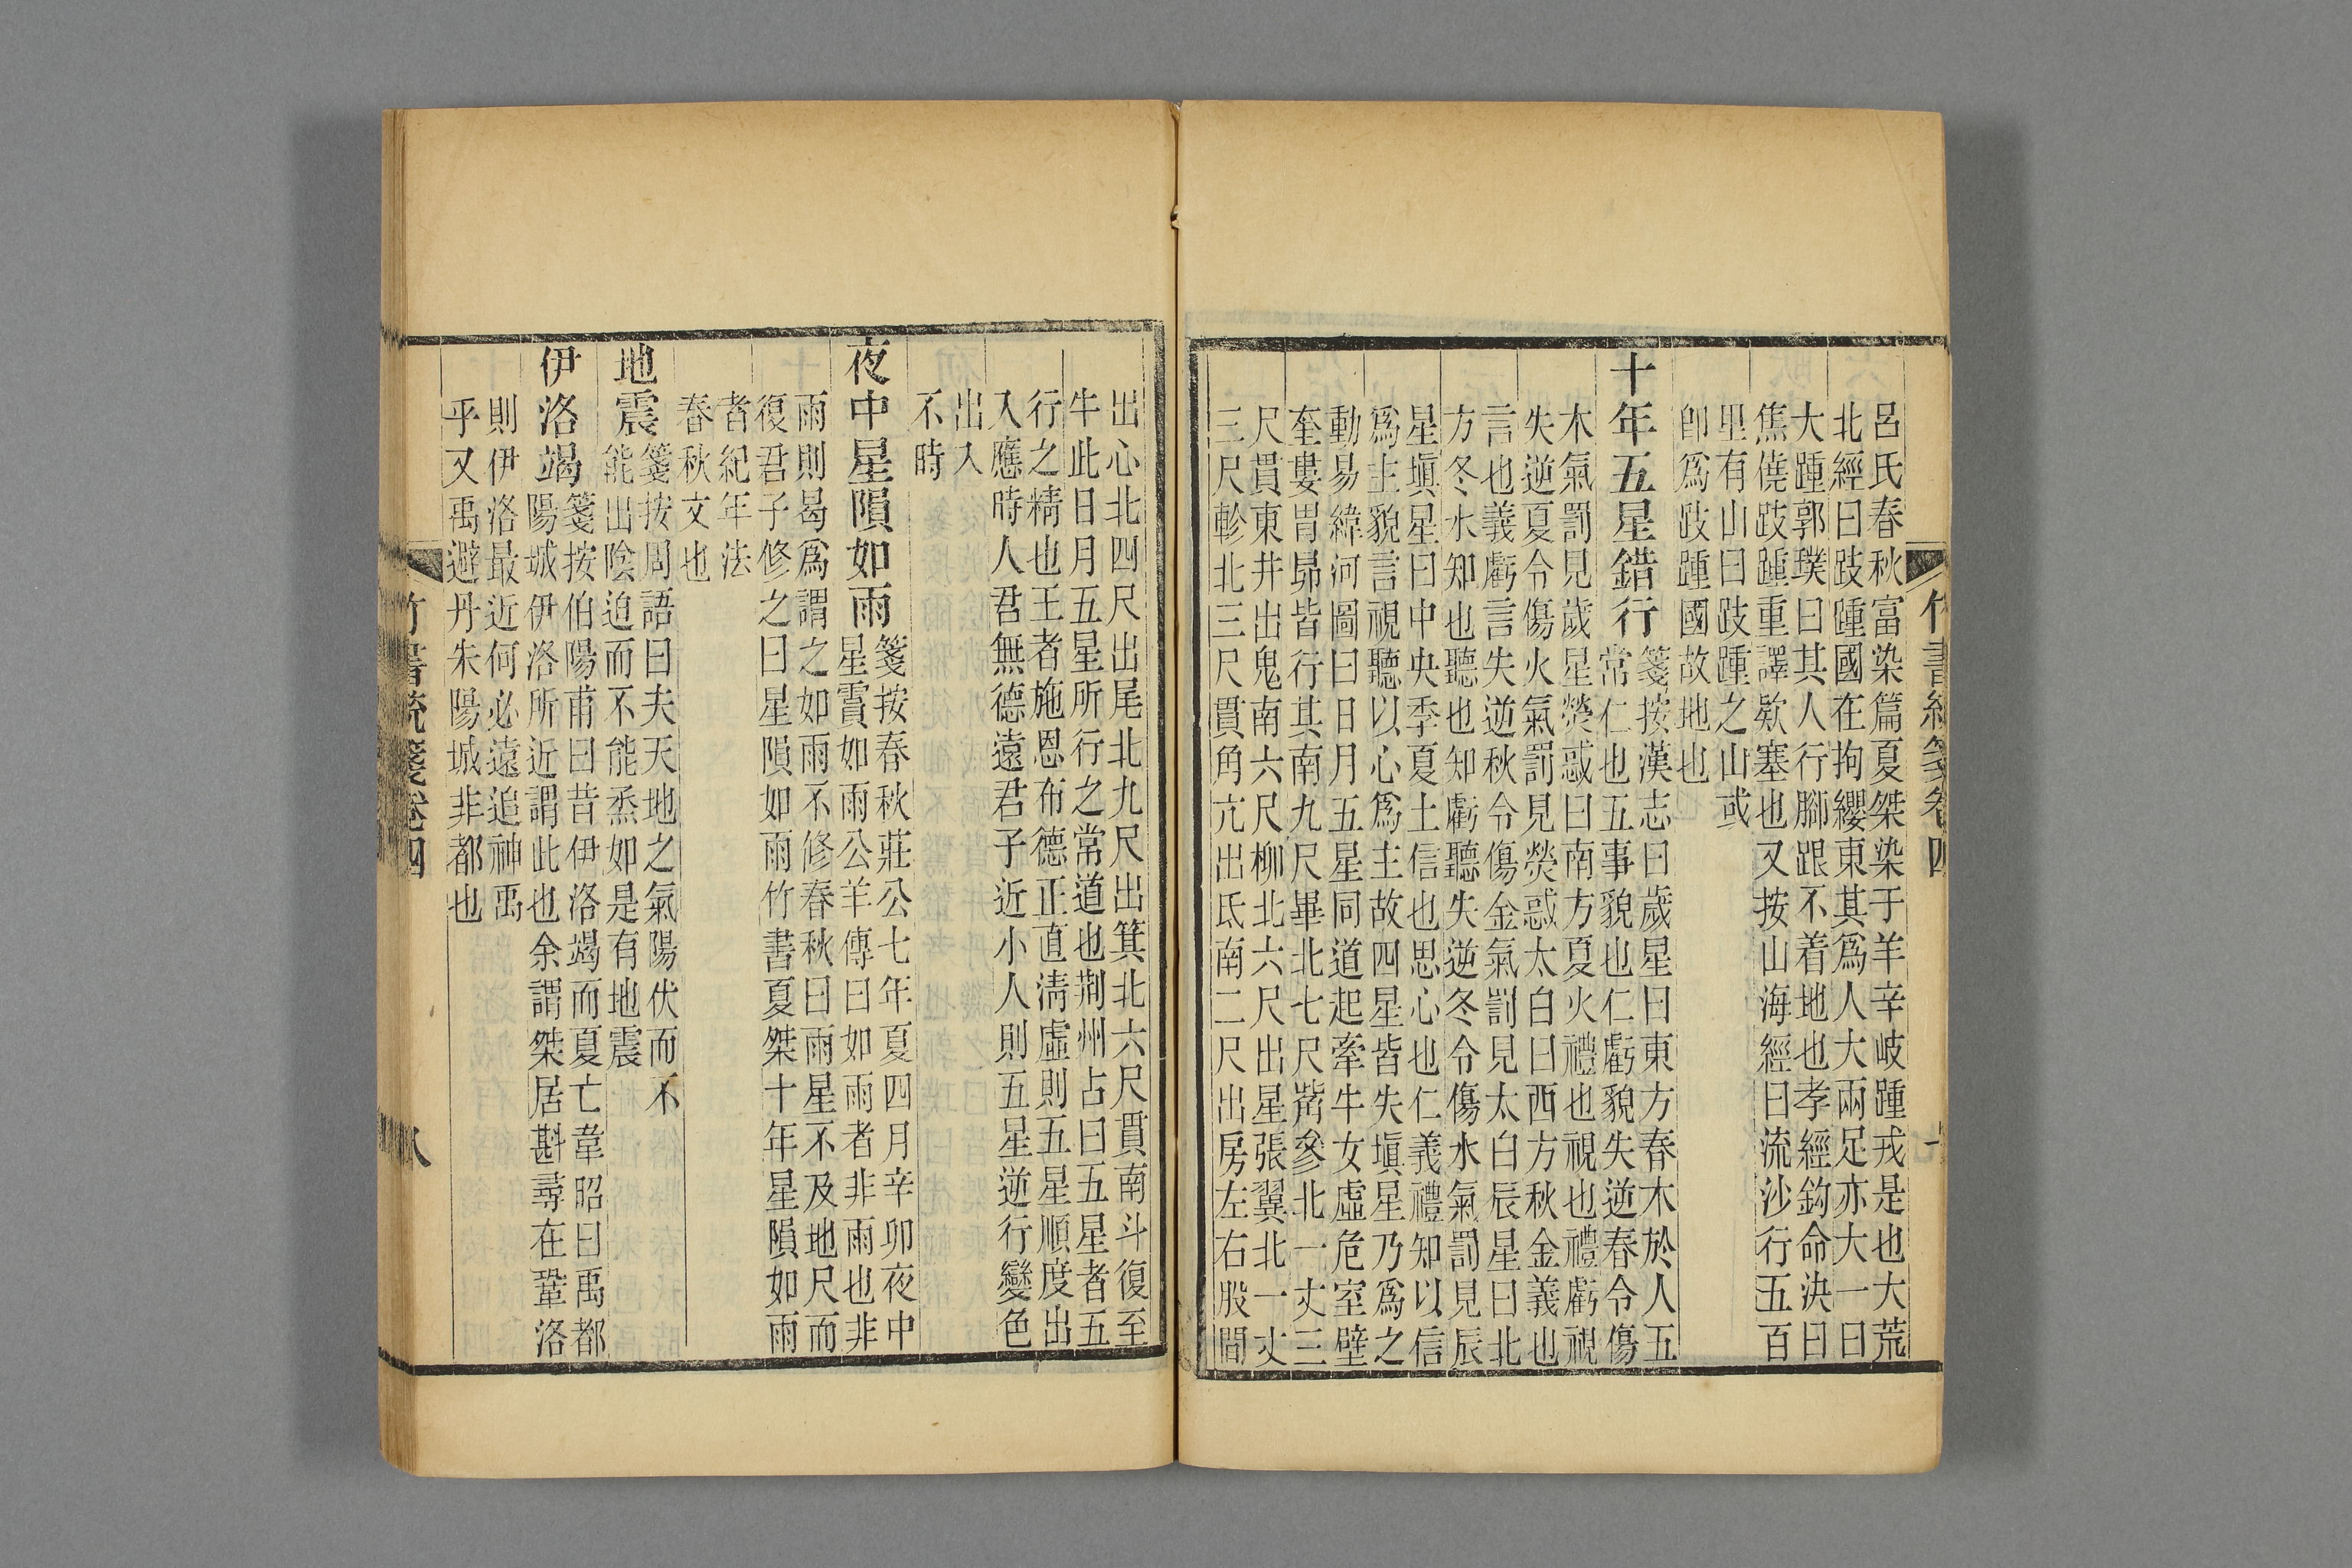 呂氏春秋富染篇夏桀染于羊辛岐踵戎是也大荒
北經曰跂踵國在拘纓東其爲人大兩足亦大一曰
大踵郭璞曰其人行腳跟不着地也孝經鈎命決曰
焦僥跂踵重譯欵塞也又按山海經曰流沙行五百
里有山曰跂踵之山或
卽爲跂踵國故地也
十年五星錯行
箋按漢志曰歲星曰東方春木於人五
常仁也五事貌也仁虧貌失逆春令傷
木氣罰見歲星熒惑曰南方夏火禮也視也禮虧視
失逆夏令傷火氣罰見熒惑太白曰西方秋金義也
言也義虧言失逆秋令傷金氣罰見太白辰星曰北
方冬水知也聽也知虧聽失逆冬令傷水氣罰見辰
星塡星曰中央季夏土信也思心也仁義禮知以信
爲主貌言視聽以心爲主故四星皆失塡星乃爲之
動易緯河圖曰日月五星同道起牽牛女虛危室壁
奎婁胃昴皆行其南九尺畢北七尺觜參北一丈三
尺貫東井出鬼南六尺柳北六尺出星張翼北一丈
三尺軫北三尺貫角亢出氐南二尺出房左右股間
出心北四尺出尾北九尺出箕北六尺貫南斗復至
牛此日月五星所行之常道也荆州占曰五星者五
行之精也王者施恩布德正直淸虛則五星順度出
入應時人君無德遠君子近小人則五星逆行變色
出入
不時
夜中星隕如雨
箋按春秋莊公七年夏四月辛卯夜中
星霣如雨公羊傳曰如雨者非雨也非
雨則曷爲謂之如雨不修春秋曰雨星不及地尺而
復君子修之曰星隕如雨竹書夏桀十年星隕如雨
者紀年法
春秋文也
地震
箋按周語曰夫天地之氣陽伏而不
能出陰迫而不能烝如是有地震
伊洛竭
箋按伯陽甫曰昔伊洛竭而夏亡韋昭曰禹都
陽城伊洛所近謂此也余謂桀居斟尋在鞏洛
則伊洛最近何必遠追神禹
乎又禹避丹朱陽城非都也
竹書統箋卷四
八